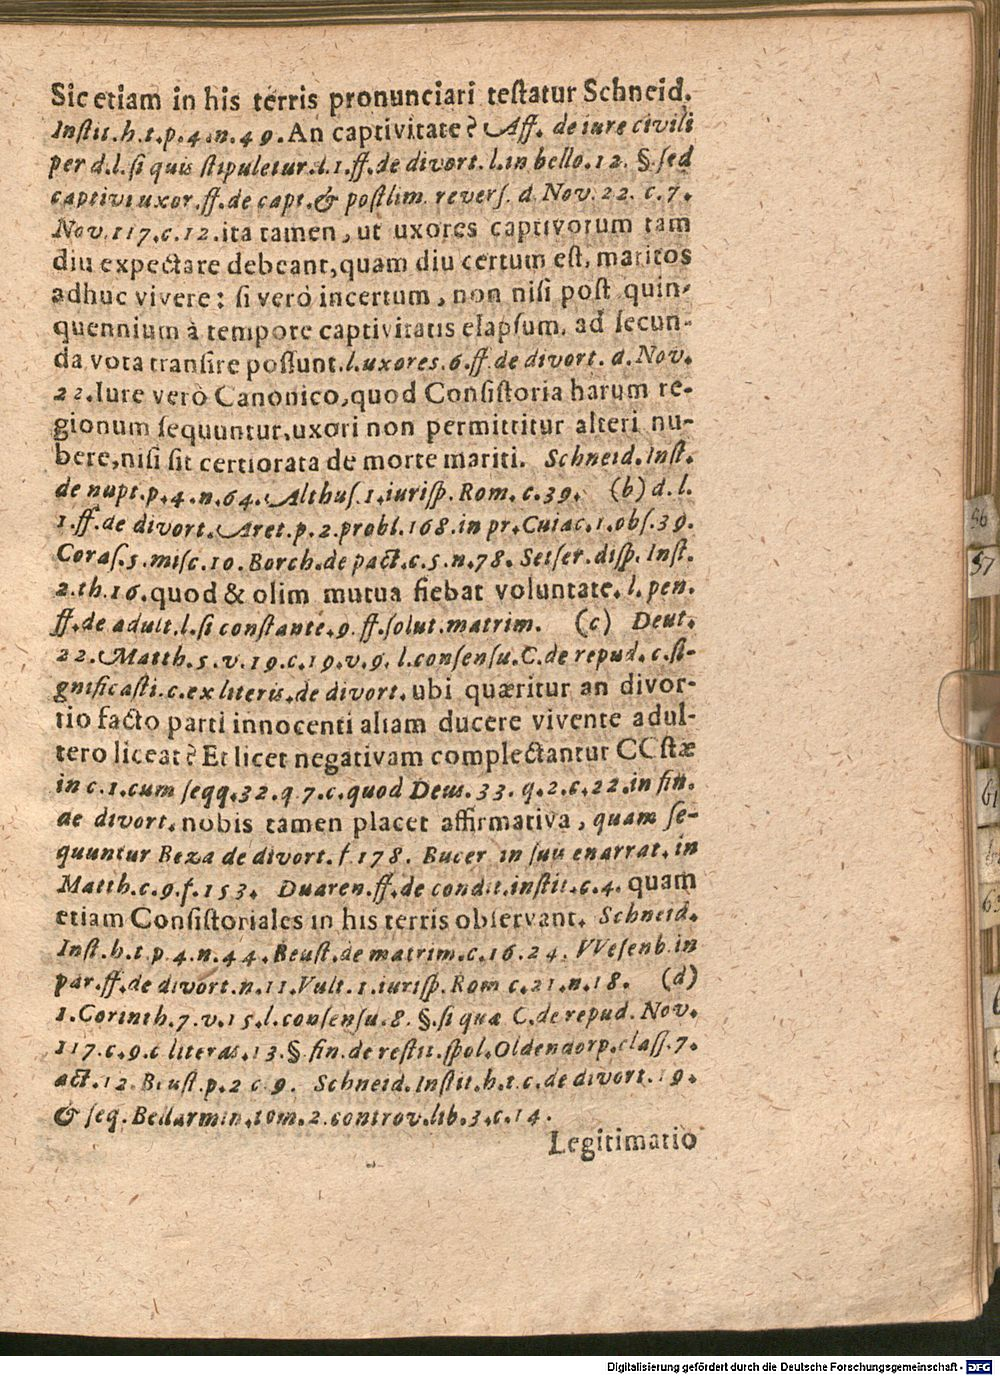 Sic etiam in his terris pronunciari testatur Schneid.
Instit. h. t. p. 4. n. 49. An captivitate? Aff. de iure civili
per d. l. si quis stipuletur. d. 1. ff. de divort. l. in bello. 12. §. sed
captivi uxor. ff. de capt. & postlim. revers. d. Nov. 22. c. 7.
Nov. 117. c. 12. ita tamen, ut uxores captivorum tam
diu expectare debeant, quam diu certum est, maritos
adhuc vivere: si verò incertum, non nisi post quin-
quennium à tempore captivitatis elapsum, ad secun-
da vota transire possunt. l. uxores. 6. ff. de divort. d. Nov.
22. Iure verò Canonico, quod Consistoria harum re-
gionum sequuntur, uxori non permittitur alteri nu-
bere, nisi sit certiorata de morte mariti. Schneid. Inst.
de nupt. p. 4. n. 64. Althus. 1. iurisp. Rom. c. 39. (b) d. l.
1. ff. de divort. Aret. p. 2. probl. 168. in pr. Cuiac. 1. obs. 39.
Coras. 5. misc. 10. Borch. de pact. c. 5. n. 78. Setser. disp. Inst.
2. th. 16. quod & olim mutua fiebat voluntate. l. pen.
ff. de adult. l. si constante. 9. ff. solut. matrim. (c) Deut.
22. Matth. 5. v. 19. c. 19. v. 9. l. consensu. C. de repud. c. si-
gnificasti. c. ex literis. de divort. ubi quæritur an divor-
tio facto parti innocenti aliam ducere vivente adul-
tero liceat? Et licet negativam complectantur CCstæ
in c. 1. cum seqq. 32. q. 7. c. quod Deus. 33. q. 2. c. 22. in fin.
de divort. nobis tamen placet affirmativa, quam se-
quuntur Beza de divort. f. 178. Bucer in suu enarrat. in
Matth. c. 9. f. 153. Duaren. ff. de condit. instit. c. 4. quam
etiam Consistoriales in his terris observant. Schneid.
Inst. h. t. p. 4. n. 44. Beust. de matrim. c. 16. 24. VVesenb. in
par. ff. de divort. n. 11. Vult. 1. iurisp. Rom. c. 21. n. 18. (d)
1. Corinth. 7. v. 15. l. consensu. 8. §. si quæ C. de repud. Nov.
117. c. 9. c literas. 13. §. fin. de restit. spol. Oldendorp. class. 7.
act. 12. Beust. p. 2 c. 9. Schneid. Instit. h. t. c. de divort. 19.
& seq. Bellarmin. tom. 2. controv. lib. 3. c. 14.
Legitimatio
56
57
61
63
Digitalisierung gefördert durch die Deutsche Forschungsgemeinschaft - DFG